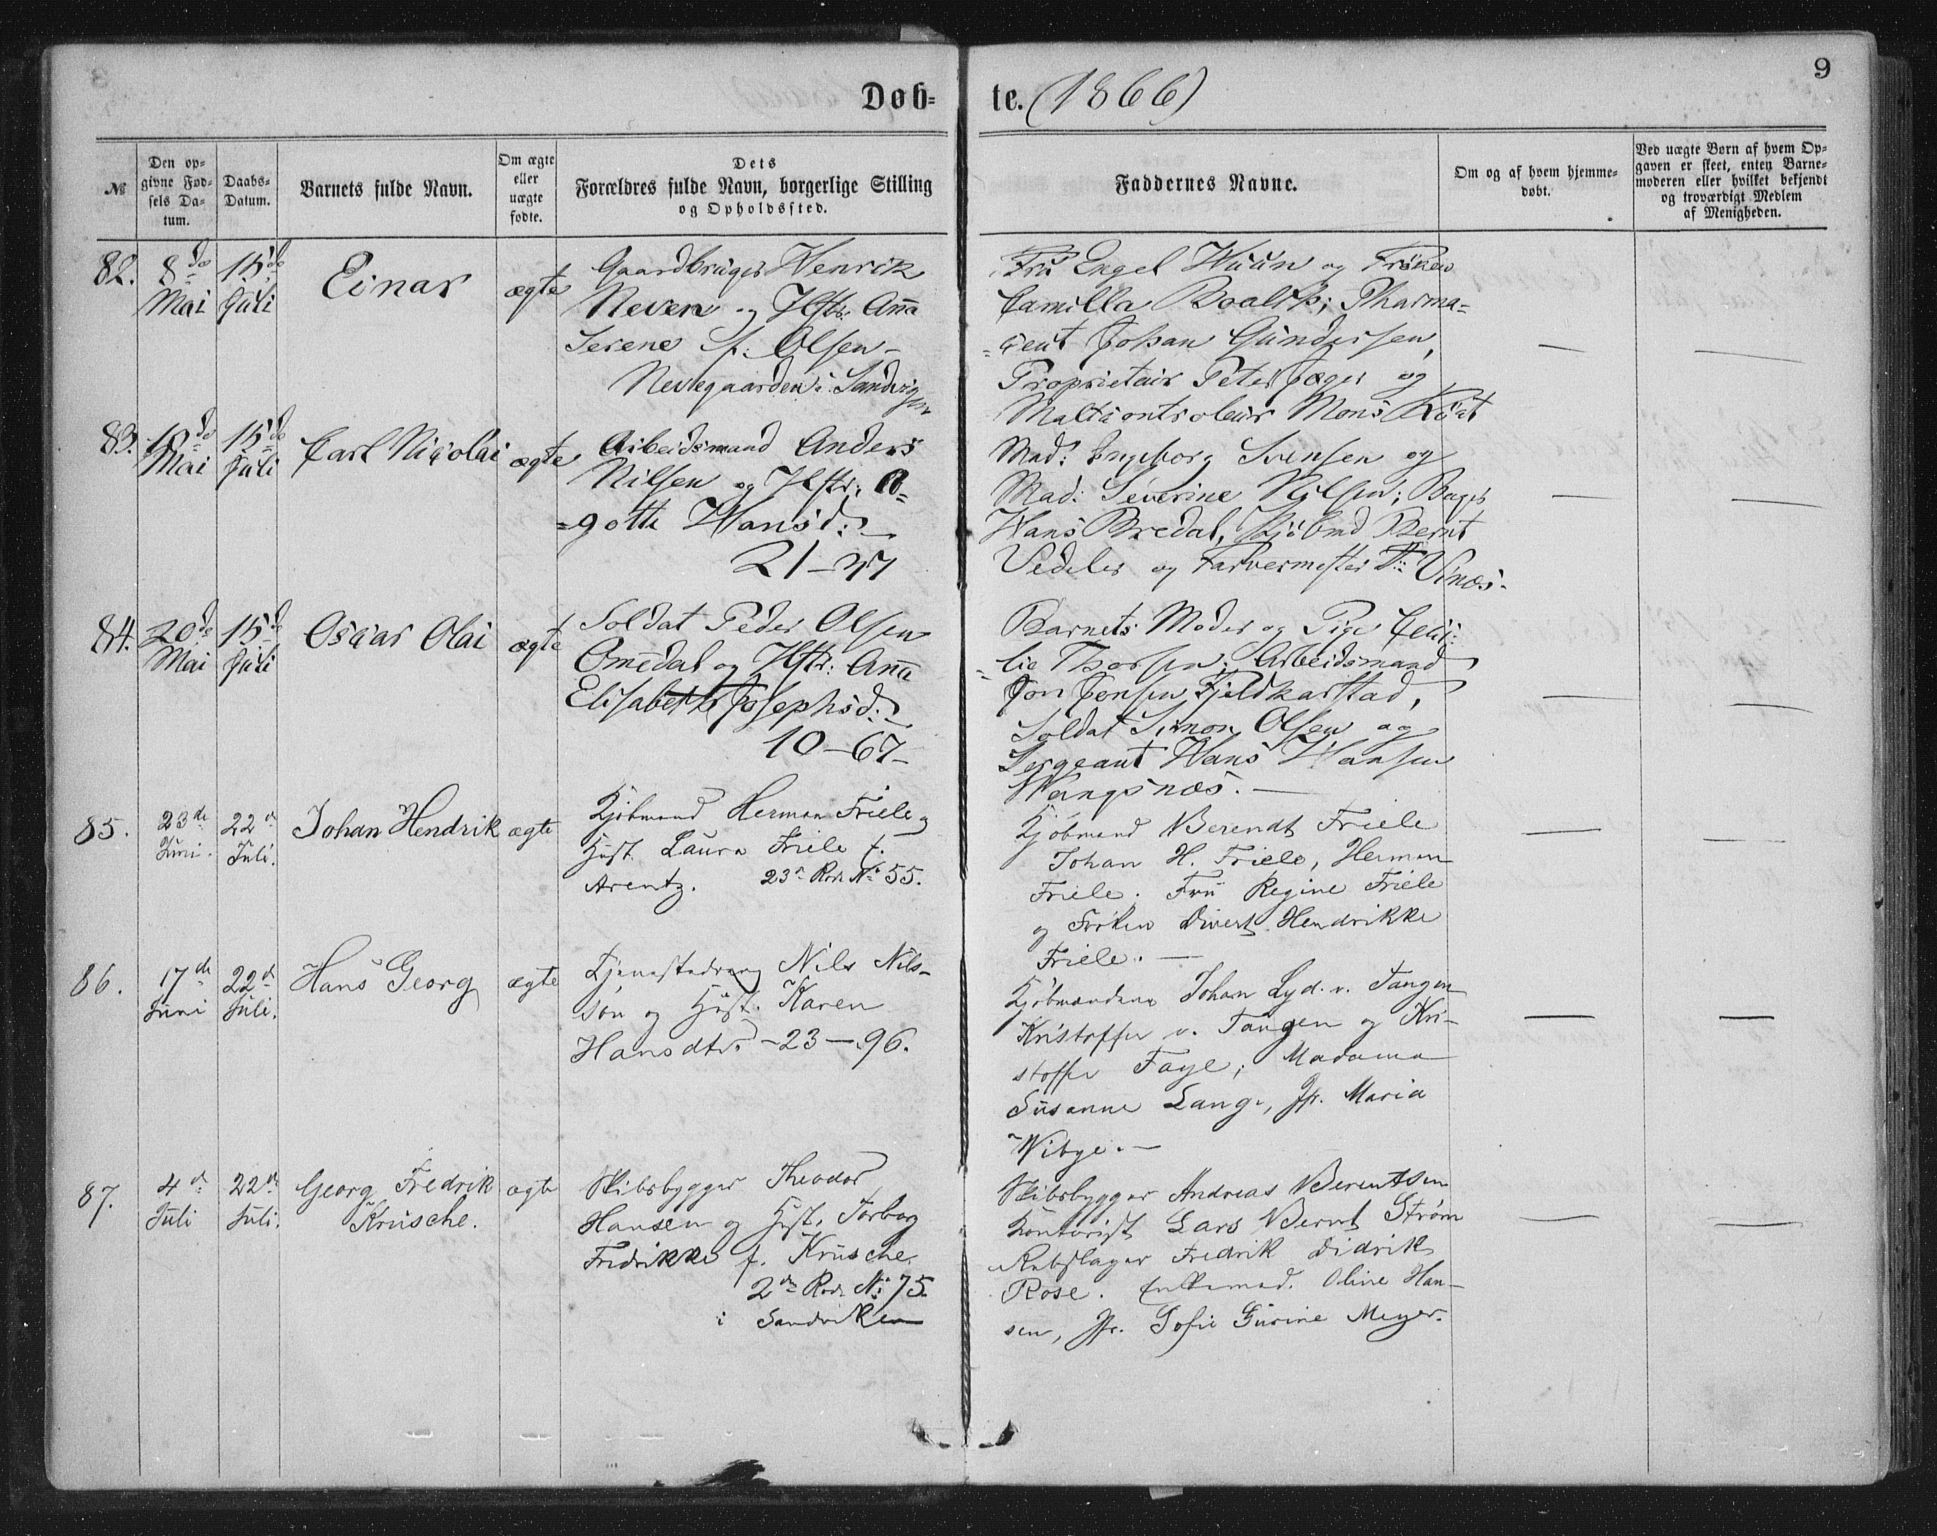 Døb=
te. (1866)
9
№
Den op=
givne Fød=
sels Da=
tum.
Daabs=
Datum.
Barnets fulde Navn.
Om ægte
eller
uægte
fødte.
Dets
Forældres fulde Navn, borgerlige Stilling
og Opholdssted.
Faddernes Navne.
Om og af hvem hjemme=
døbt.
Ved uægte Børn af hvem Op=
gaven er skeet, enten Barne=
moderen eller hvilket bekjendt
og troværdigt Medlem
af Menigheden.
82.
8de
Mai
15de
Juli
Einar
ægte
Gaardbruger Henrik
Neven og Hstr: Ana
Serene f. Olsen –
Nevegaarden i Sandvigen
Fru Engel Wuun og Frøken
Camilla ; Pharma=
=ceut Johan Gundersen,
Proprietair Peter Jæger og
Maltcontroleur Mons
83.
10de
Mai
15de
Juli
Carl Nicolai
ægte
Arbeidsmand Anders
Nilsen og Hstr:
=gotte Hansd: –
21–47
Mad: Ingeborg Svensen og
Mad: Severine Nilsen; Bager
Hans Bredal, Kjøbmd Bernt
Vedeler og Farvermester Vinæs.
84.
20de
Mai
15de
Juli
Oscar Olai
ægte
Soldat Peder Olsen
Omedal og Hstr: Ana
Elisabeth Josephsd: –
10–67–
Barnets Moder og Pige Ceci:
=lie Thorsen; Arbeidsmand
Jon Jensen Fjeldkarstad,
Soldat Simon Olsen og
Sergeant Hans Hansen
Wangsnæs. –
85.
23de
Juni.
22d
Juli.
Johan Hendrik
ægte
Kjøbmand Herman Friele og
Hust. Laura Friele f.
Arentz. 23de Rode No 55.
Kjøbmand Berendt Friele
Johan H. Friele, Herman
Friele. Fru Regine Friele
og Frøken Divert Hendrikke
Friele. –
86.
17de
Juni
22d
Juli.
Hans Georg
ægte
Tjenestedreng Nils Nils-
son og Hust. Karen
Hansdtr. –23–96.
Kjøbmændene Johan Lyd. v. Tangen
Kristoffer v. Tangen og Kri-
stoffer Faye; Madame
Susanne Lange, Jfr. Maria
Wibye. –
87.
4de
Juli
22de
Juli.
Georg Fredrik
Krüsche.
ægte
Skibsbygger Theodor
Hansen og Hust. Torborg
Fredrikke f. Krüsche
2den Rode No 75.
i Sandviken
Skibsbygger Andreas Berentsen
Kontorist Lars Bernt Strøm
Rebslager Fredrik Didrik
Rose. Enkemad. Oline Han-
sen, Jfr. Sofie Gurine Meyer.